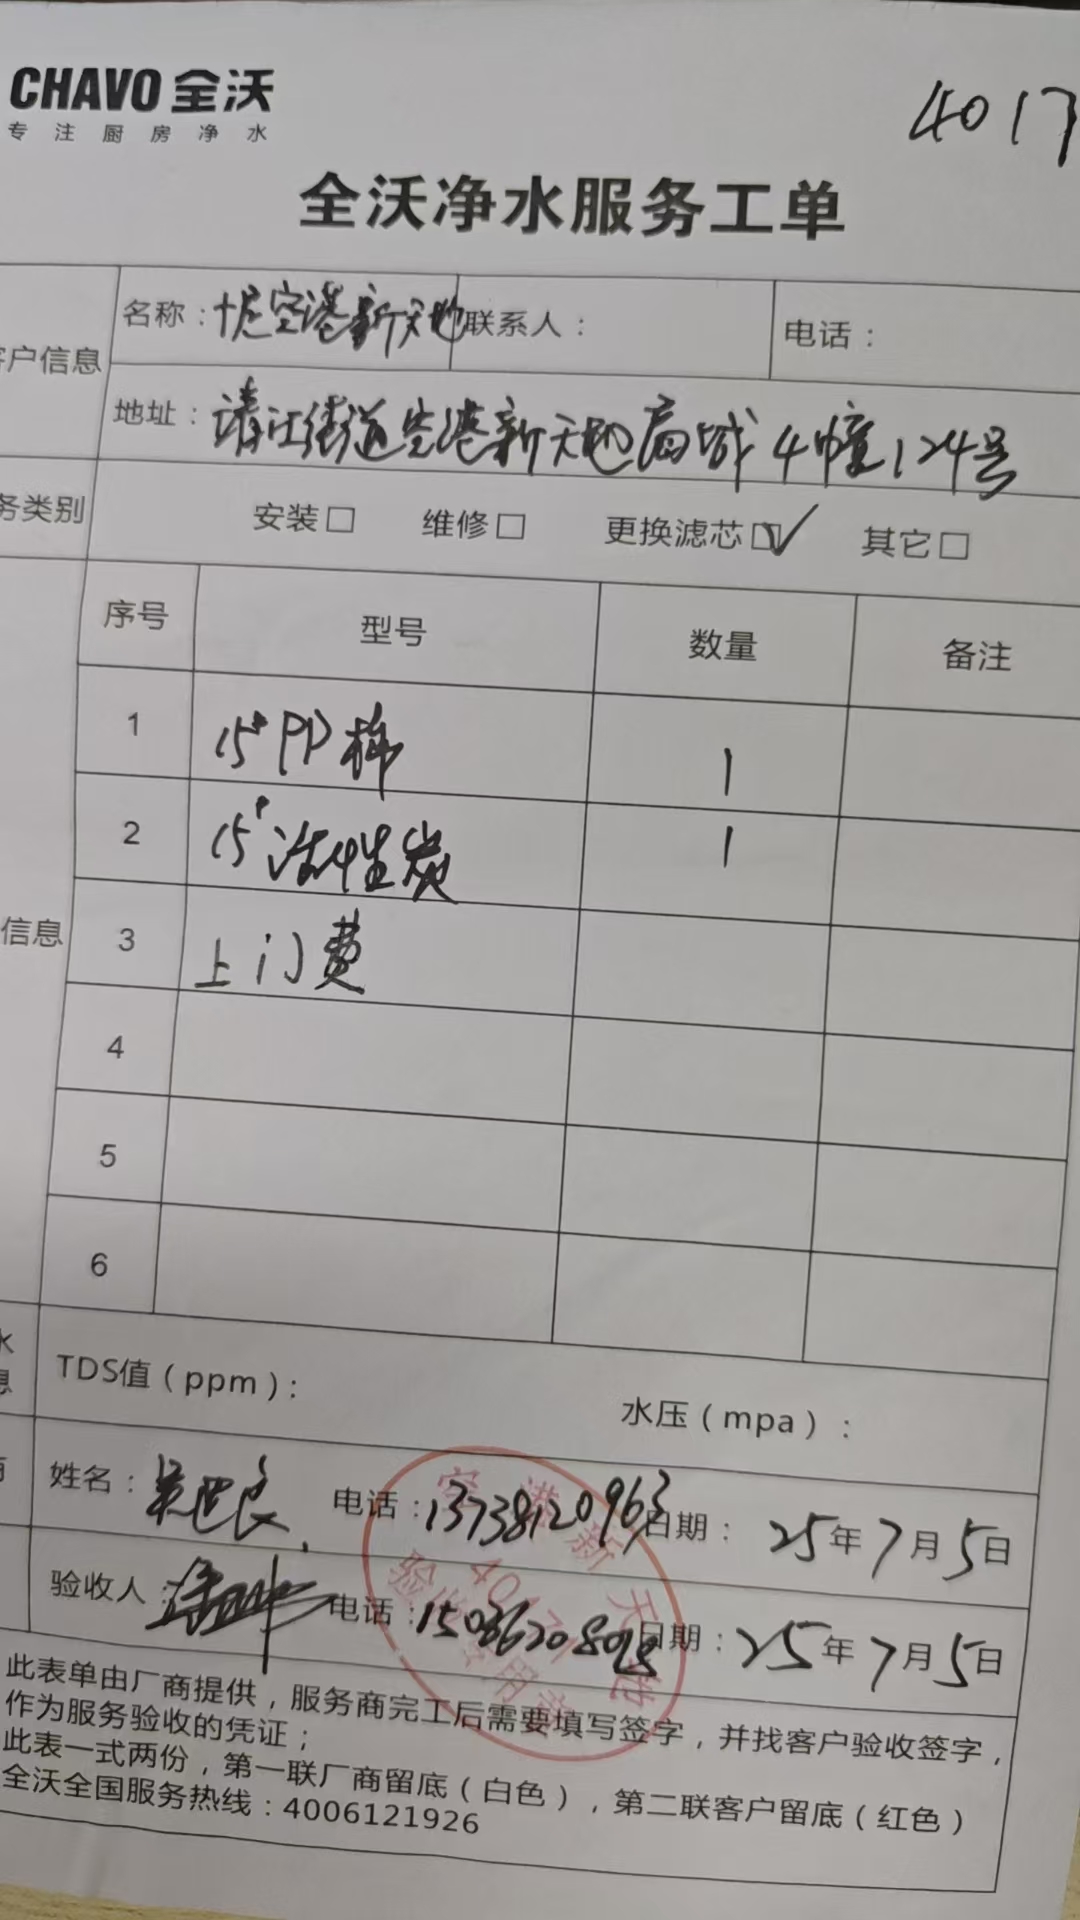 CHAVO 全沃
专注厨房净水
4017
全沃净水服务工单
户信息
名称：空港新天地 联系人： 电话：
地址：靖江街道空港新天地商城4幢124号
务类别 安装□ 维修□ 更换滤芯□✓ 其它□
序号 型号 数量 备注
1 15"PP棉 1
2 15"活性炭 1
信息
3 上门费
4
5
6
TDS值（ppm）： 水压（mpa）：
姓名：吴世良 电话：13738120963 日期：25年7月5日
验收人： 电话： 日期：25年7月5日
空港新天地
4017
验收专用章
此表单由厂商提供，服务商完工后需要填写签字，并找客户验收签字，
作为服务验收的凭证；
此表一式两份，第一联厂商留底（白色），第二联客户留底（红色）
全沃全国服务热线：4006121926